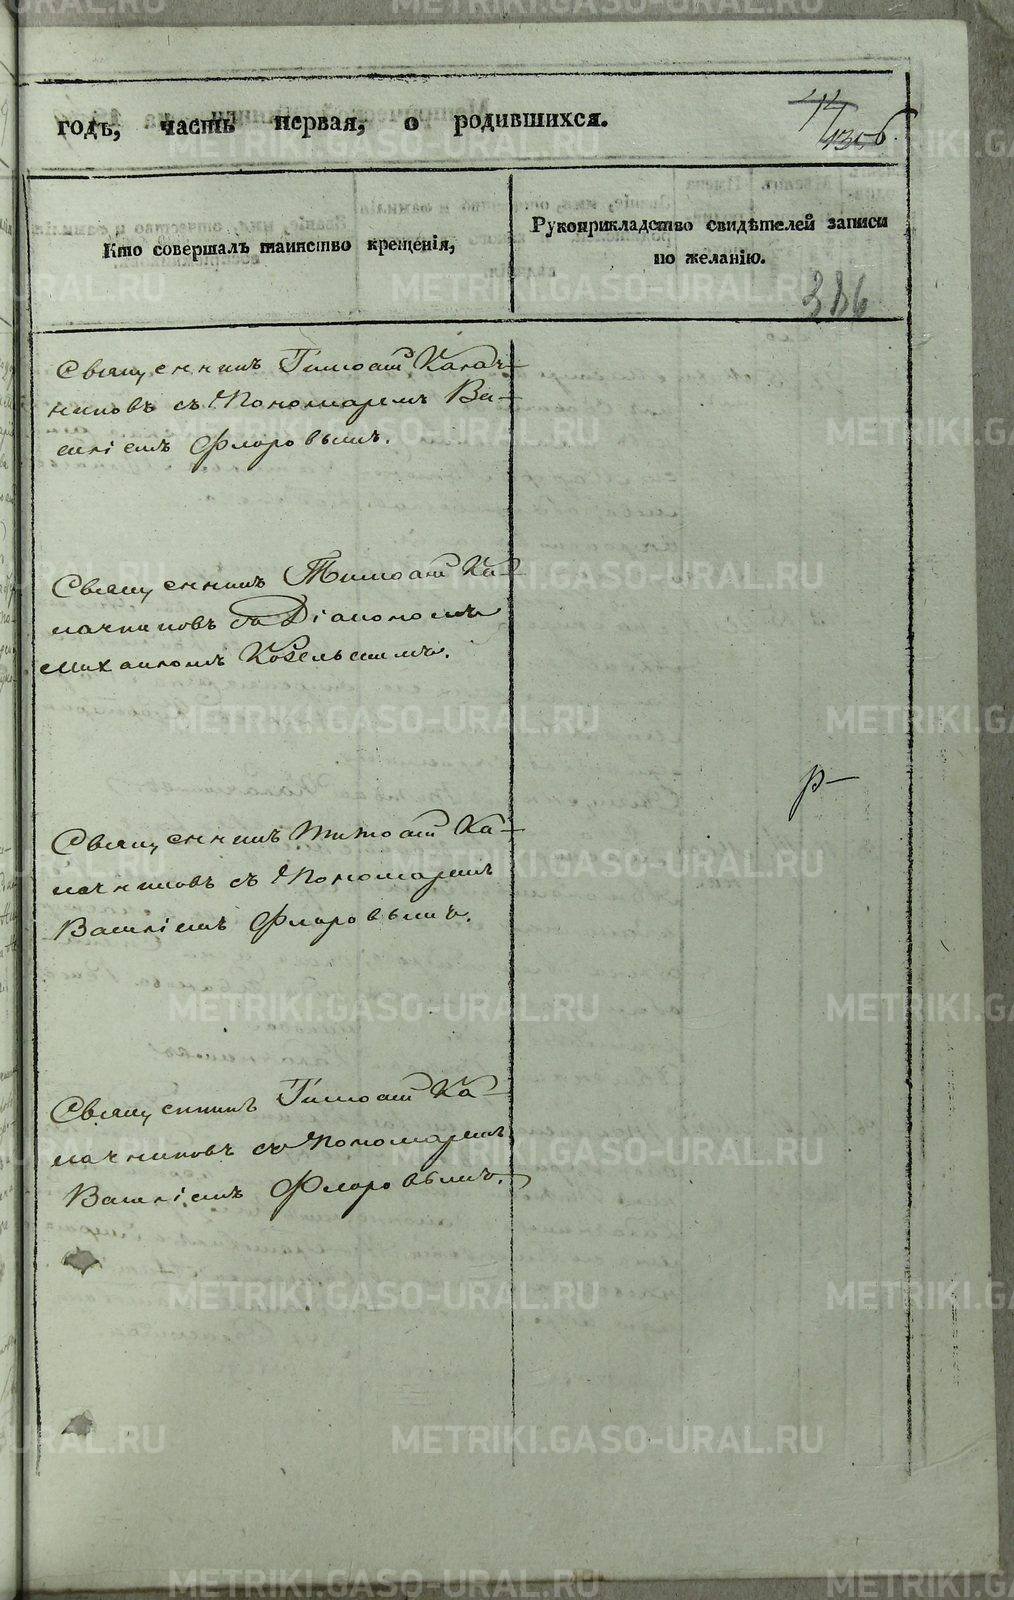 годъ, часть первая, о родившихся.
Кто совершалъ таинство крещенія,
Рукоприкладство свидѣтелей записи
по желанію.
386
Священникъ Тимоѳей Калач-
никовъ съ Пономаремъ Ва-
силіемъ Флоровымъ.
Священникъ Тимоѳей Ка-
лачниковъ съ Діакономъ
Михаиломъ Козельскимъ.
р-
Священникъ Тимоѳей Ка-
лачниковъ съ Пономаремъ
Василіемъ Флоровымъ.
Священникъ Тимоѳей Ка-
лачниковъ съ Пономаремъ
Василіемъ Флоровымъ.
METRIKI.GASO-URAL.RU